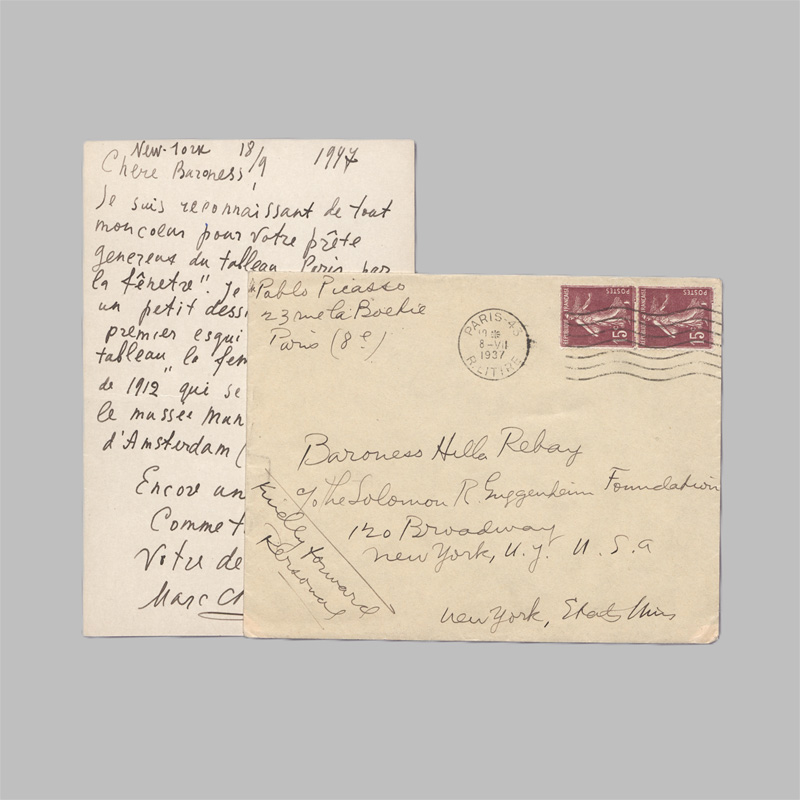 New-York 18/9 1947
Chère Baroness
Je suis reconnaissant de tout
mon coeur pour votre prête
genereus du tableau "Paris par
la fênetre". Je
un petit dessi
premier esqui
tableau la fen
de 1912" qui se
le mussée Mun
d'Amsterdam (
Encore un
Comme t
Votre de
Marc Ch
Pablo Picasso
23 rue la Boetie
Paris (8e)
PARIS-43
8-VII
1937
R. LITTRE
REPUBLIQUE FRANÇAISE
POSTES
15c
REPUBLIQUE FRANÇAISE
POSTES
15c
Baroness Hilla Rebay
c/o The Solomon R. Guggenheim Foundation
120 Broadway
New York, N.Y. U.S.A
Kindly forward
Personal
New York, Etats Unis